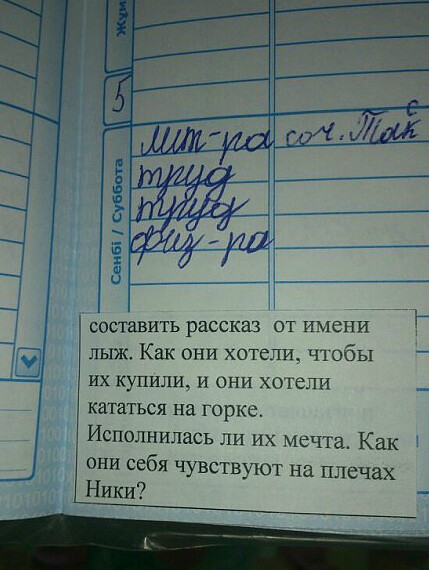 Жұм
5
Сенбі / Суббота
лит-ра соч. Так с
труд
труд
физ-ра
составить рассказ от имени
лыж. Как они хотели, чтобы
их купили, и они хотели
кататься на горке.
Исполнилась ли их мечта. Как
они себя чувствуют на плечах
Ники?